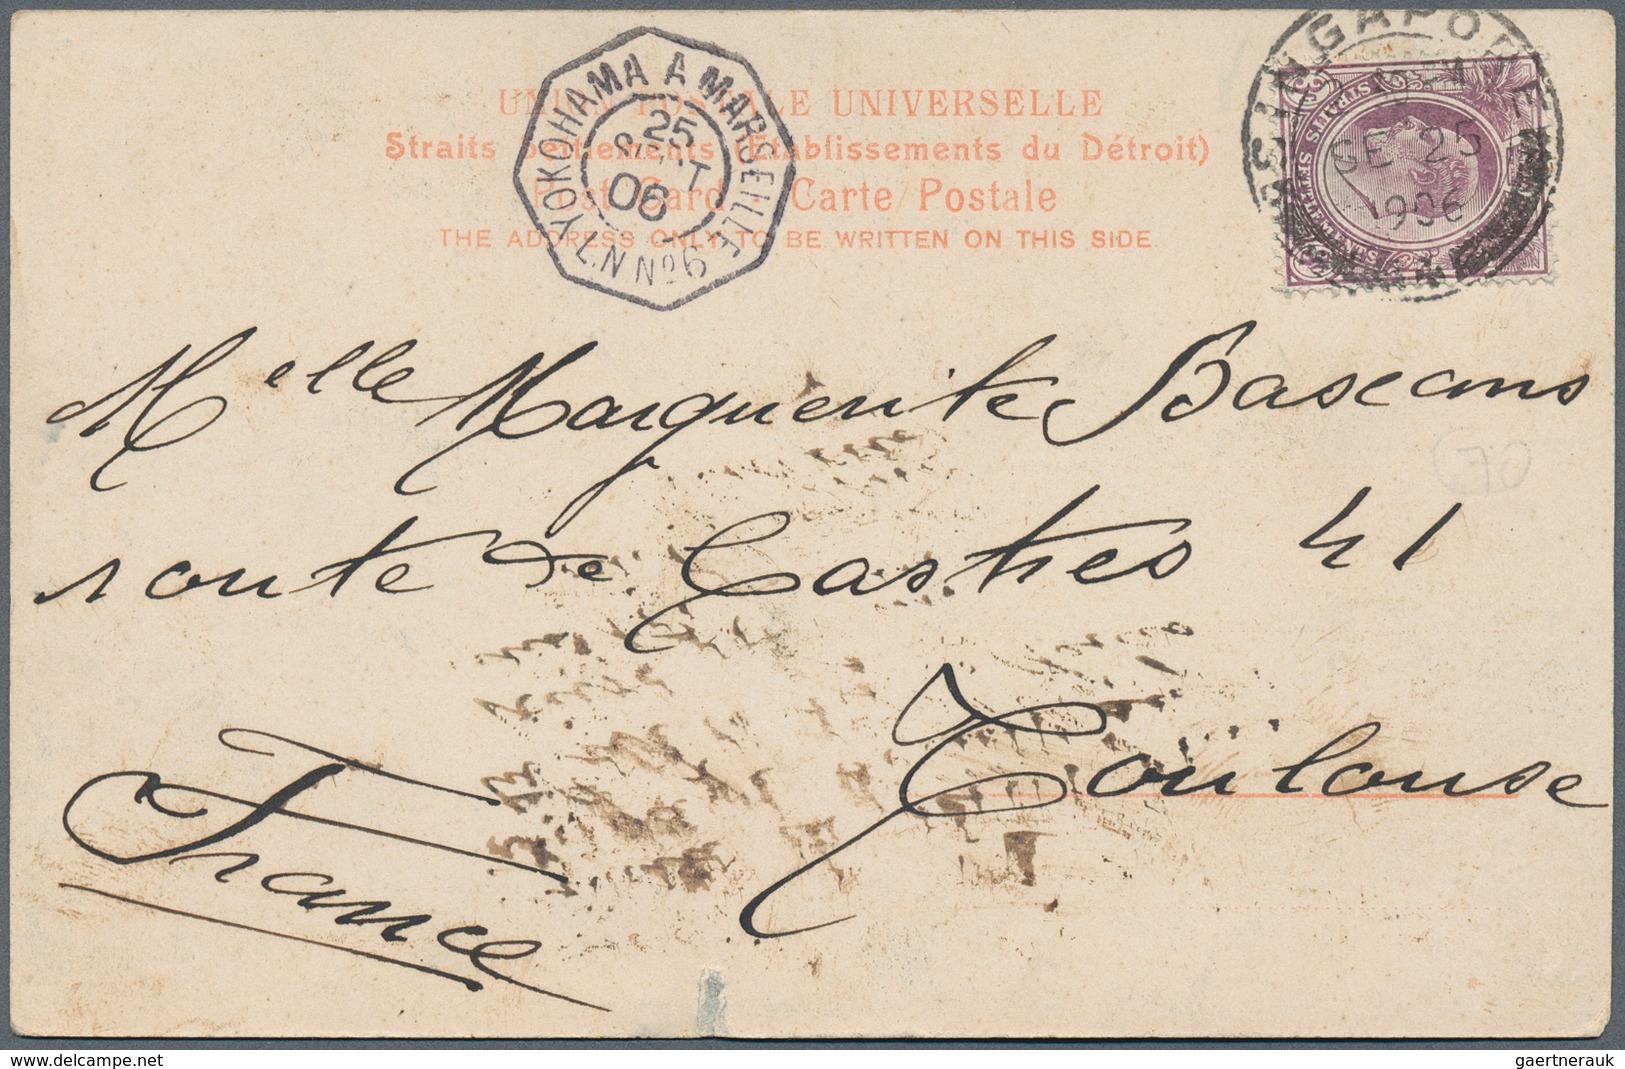 UNION POSTALE UNIVERSELLE
Straits Settlements (Etablissements du Détroit)
Post Card - Carte Postale
THE ADDRESS ONLY TO BE WRITTEN ON THIS SIDE.
YOKOHAMA A MARSEILLE
25
SEPT
06
L.N Nº6
SINGAPORE
SE 25
1906
STRAITS SETTLEMENTS
Melle Marguerite Bascans
route de Castres 41
Toulouse
France
gaertnerauk